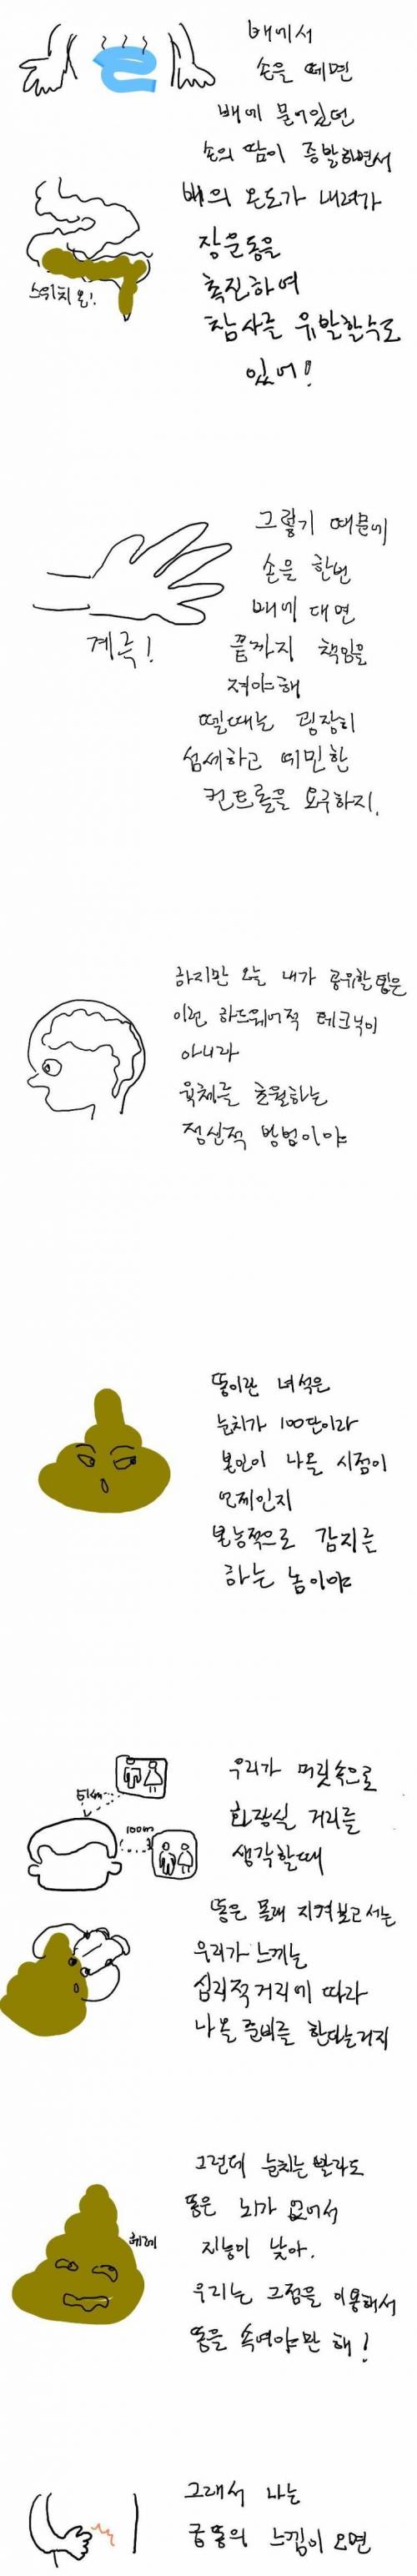 배에서
손을 떼면
배에 묻어있던
손의 땀이 증발하면서
배의 온도가 내려가
장운동을
촉진하여
참사를 유발할수도
있어!
스위치 온!
그렇기 때문에
손을 한번
배에 대면
끝까지 책임을
져야해
뗄때는 굉장히
섬세하고 예민한
컨트롤을 요구하지.
계륵!
하지만 오늘 내가 공유할 팁은
이런 하드웨어적 테크닉이
아니라
육체를 초월하는
정신적 방법이야
똥이란 녀석은
눈치가 100단이라
본인이 나올 시점이
언제인지
본능적으로 감지를
하는 놈이야
우리가 머릿속으로
화장실 거리를
생각할때
51km
100m
똥은 몰래 지켜보고서는
우리가 느끼는
심리적 거리에 따라
나올 준비를 한다는거지
그런데 눈치는 빨라도
똥은 뇌가 없어서
지능이 낮아.
우리는 그점을 이용해서
똥을 속여야만 해!
헤헤
그래서 나는
급똥의 느낌이 오면